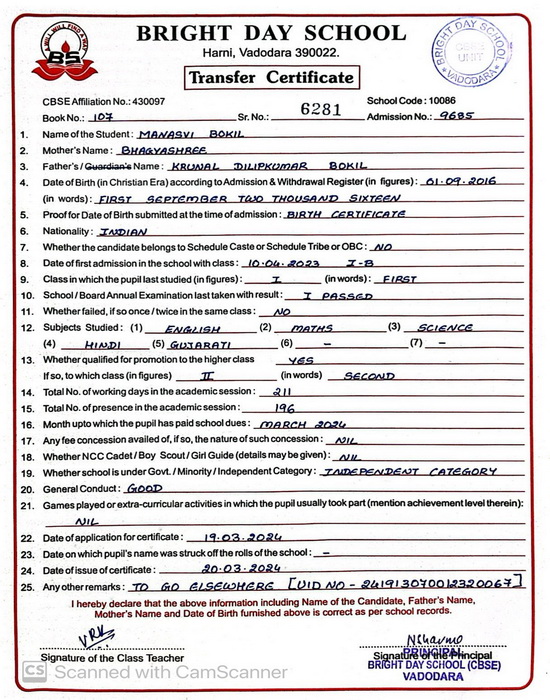 BRIGHT DAY SCHOOL
Harni, Vadodara 390022.
Transfer Certificate
BS
BRIGHT DAY SCHOOL
CBSE
UNIT
VADODARA
CBSE Affiliation No.: 430097 School Code : 10086
Book No.: 107 Sr. No.: 6281 Admission No.: 9685
1. Name of the Student : MANASVI BOKIL
2. Mother's Name : BHAGYASHREE
3. Father's / Guardian's Name : KRUNAL DILIPKUMAR BOKIL
4. Date of Birth (in Christian Era) according to Admission & Withdrawal Register (in figures) : 01.09.2016
(in words) : FIRST SEPTEMBER TWO THOUSAND SIXTEEN
5. Proof for Date of Birth submitted at the time of admission : BIRTH CERTIFICATE
6. Nationality : INDIAN
7. Whether the candidate belongs to Schedule Caste or Schedule Tribe or OBC : NO
8. Date of first admission in the school with class : 10.04.2023 I-B
9. Class in which the pupil last studied (in figures) : I (in words) : FIRST
10. School / Board Annual Examination last taken with result : I PASSED
11. Whether failed, if so once / twice in the same class : NO
12. Subjects Studied : (1) ENGLISH (2) MATHS (3) SCIENCE
(4) HINDI (5) GUJARATI (6) – (7) –
13. Whether qualified for promotion to the higher class YES
If so, to which class (in figures) II (in words) SECOND
14. Total No. of working days in the academic session : 211
15. Total No. of presence in the academic session : 196
16. Month upto which the pupil has paid school dues : MARCH 2024
17. Any fee concession availed of, if so, the nature of such concession : NIL
18. Whether NCC Cadet / Boy Scout / Girl Guide (details may be given) : NIL
19. Whether school is under Govt. / Minority / Independent Category : INDEPENDENT CATEGORY
20. General Conduct : GOOD
21. Games played or extra-curricular activities in which the pupil usually took part (mention achievement level therein) :
NIL
22. Date of application for certificate : 19.03.2024
23. Date on which pupil's name was struck off the rolls of the school : –
24. Date of issue of certificate : 20.03.2024
25. Any other remarks : TO GO ELSEWHERE [UID NO - 241913070012320067]
I hereby declare that the above information including Name of the Candidate, Father's Name,
Mother's Name and Date of Birth furnished above is correct as per school records.
Signature of the Class Teacher Signature of the Principal
PRINCIPAL
BRIGHT DAY SCHOOL (CBSE)
VADODARA
CS Scanned with CamScanner